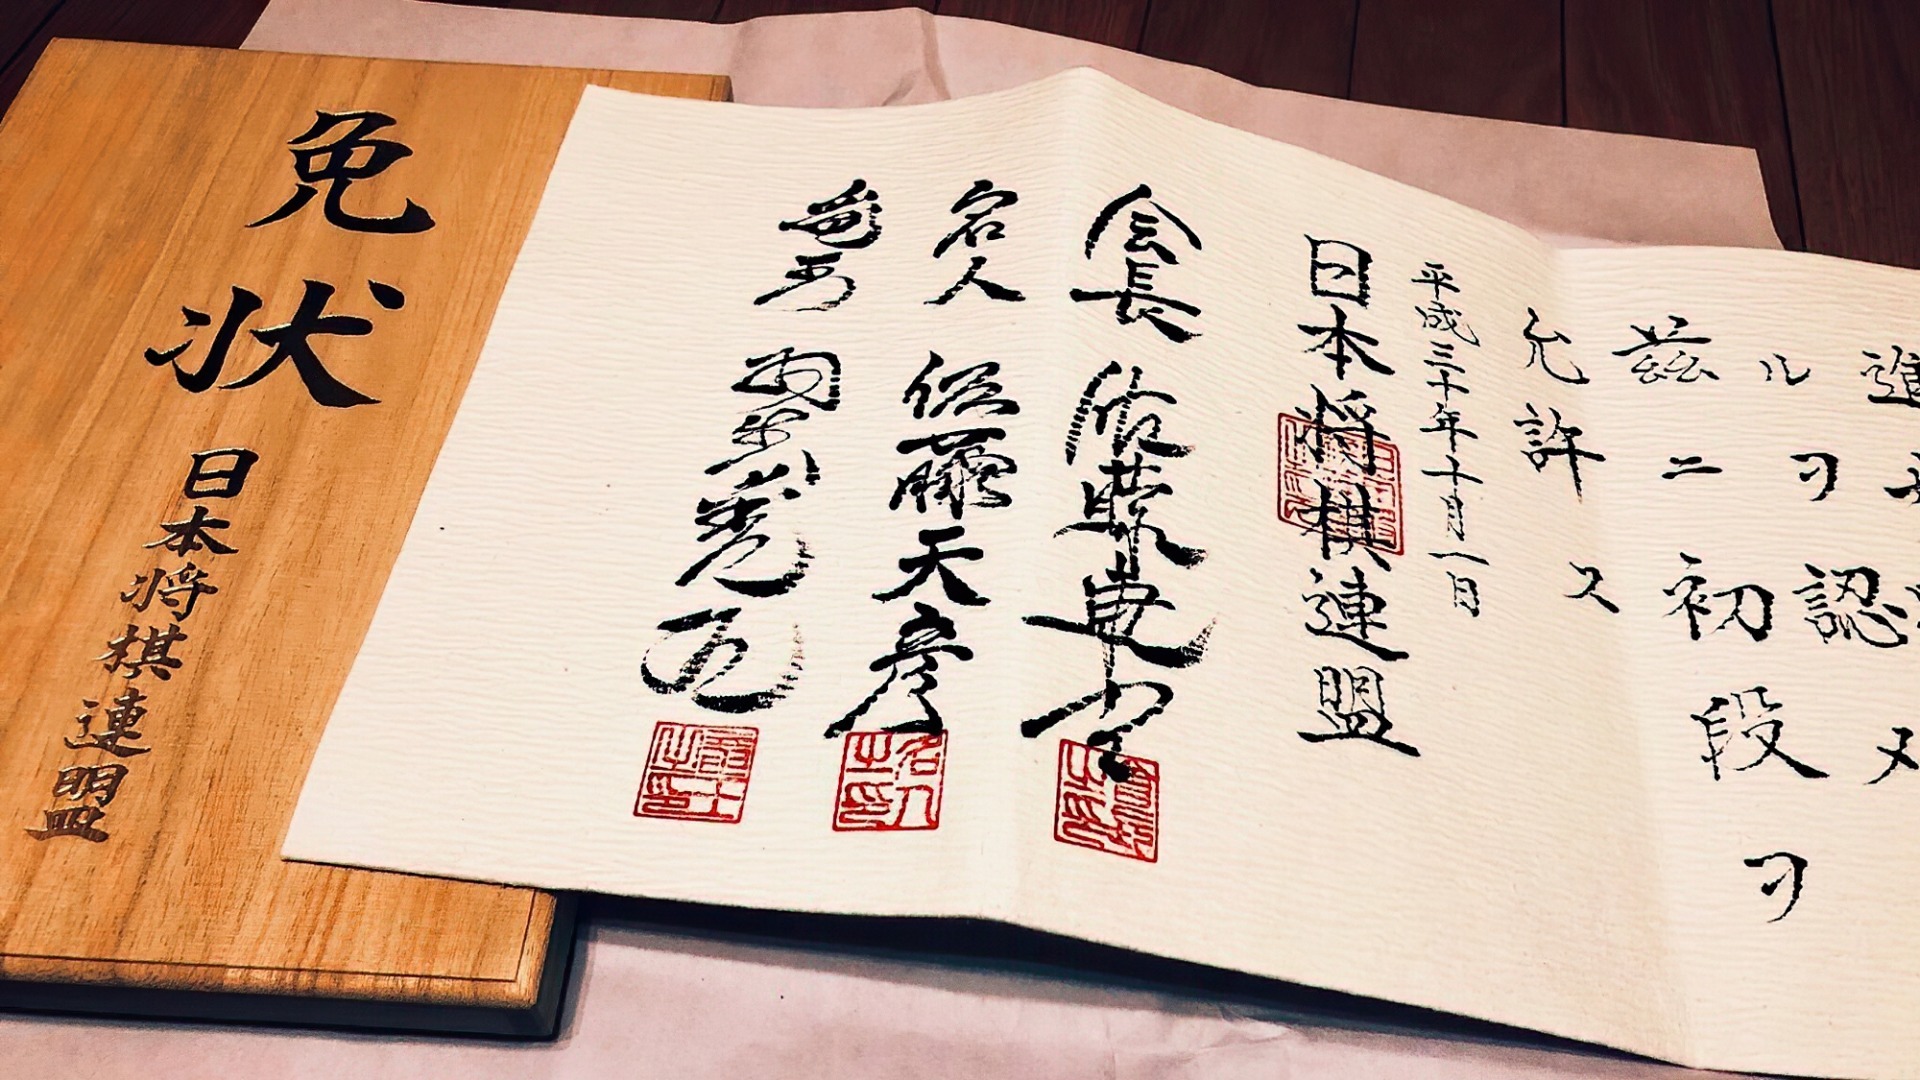 免状
日本将棋連盟
ルヲ認メ
茲ニ初段ヲ
允許ス
平成三十年十月一日
日本将棋連盟
会長 佐藤康光
名人 佐藤天彦
竜王 羽生善治